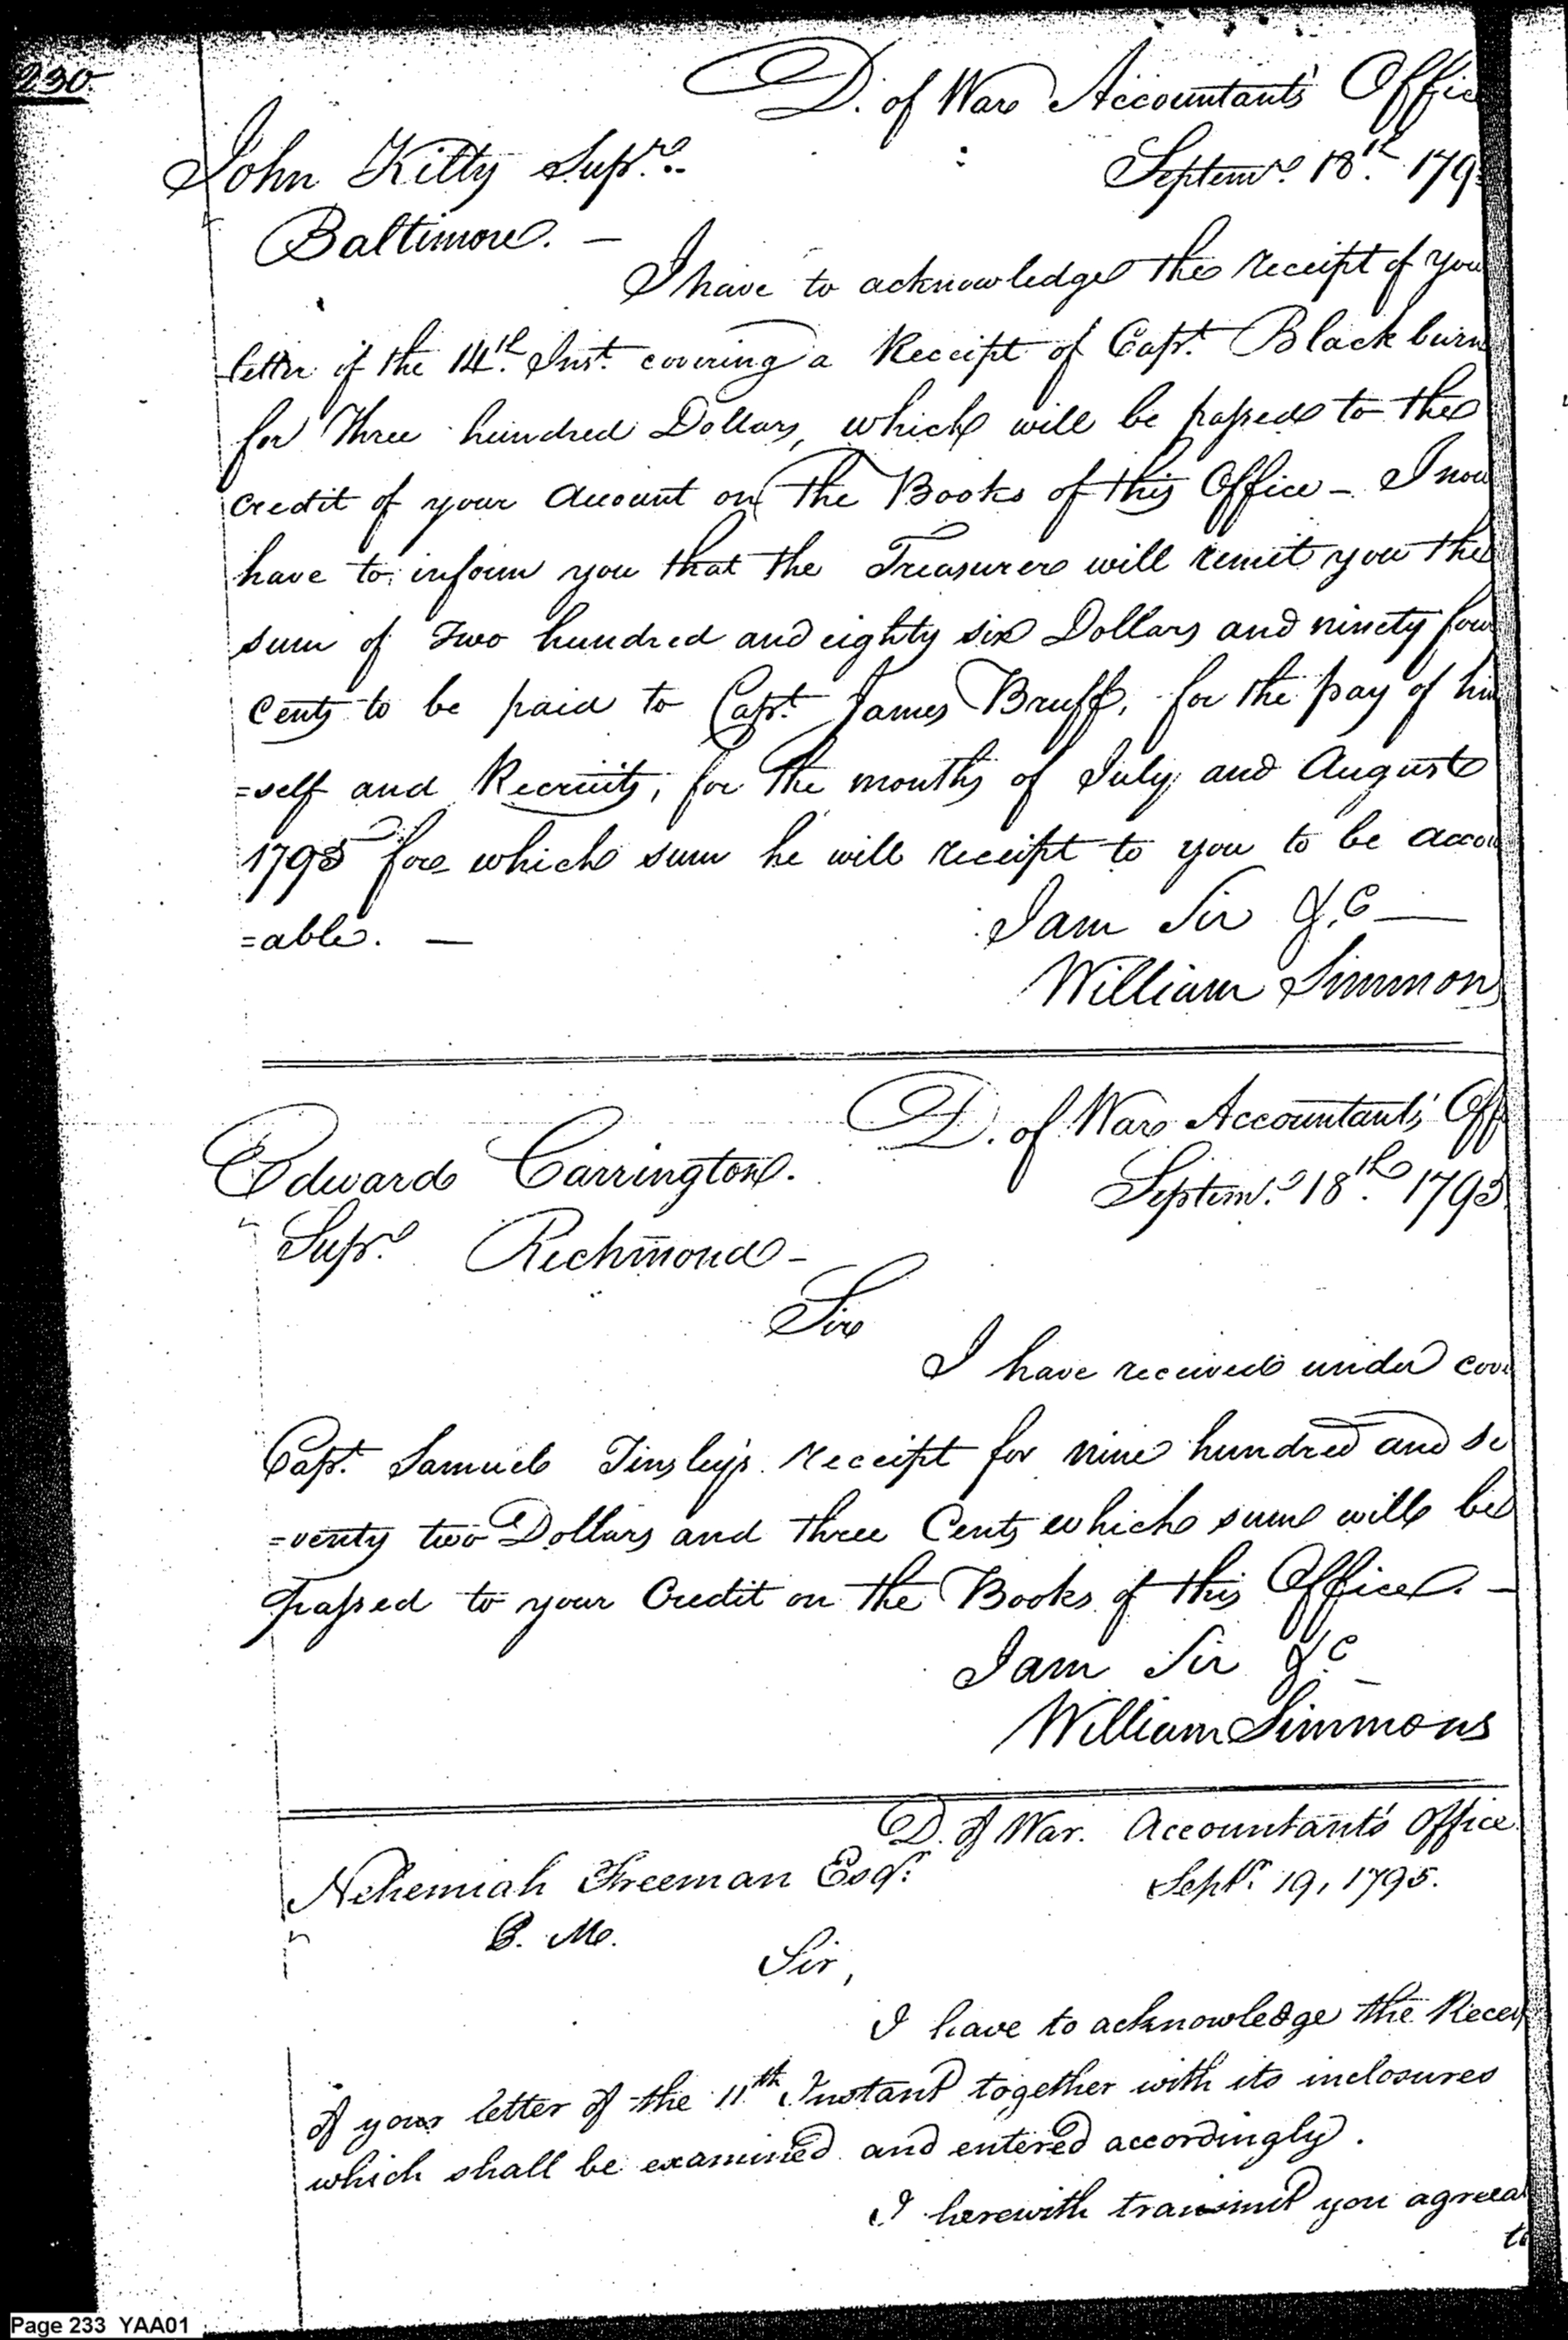 230.
D. of War Accountants' Offic
John Kilty Supr.
Septemr. 18th. 179
Baltimore. —
I have to acknowledge the receipt of you
letter of the 14th. Inst. covering a Receipt of Capt. Blackburn
for Three hundred Dollars, which will be passed to the
credit of your Account on the Books of this Office – I now
have to inform you that the Treasurer will remit you the
sum of Two hundred and eighty six Dollars and ninety four
Cents to be paid to Capt. James Bruff, for the pay of him
=self and Recruits, for the months of July and August
1795 for which sum he will receipt to you to be accou
=able. —
I am Sir &.C —
William Simmons
D. of War Accountants' Off
Edward Carrington.
Septemr. 18th. 1795
Supr. Richmond –
Sir
I have received under cov
Capt. Samuel Tinsley's receipt for nine hundred and se
=venty two Dollars and three Cents which sum will be
passed to your Credit on the Books of this Office. –
I am Sir &.c –
William Simmons
D. of War. Accountant's Office
Nehemiah Freeman Esqr:
Septr. 19, 1795.
B. M.
Sir,
I have to acknowledge the Receip
of your letter of the 11th Instant together with its inclosures
which shall be examined and entered accordingly.
I herewith transmit you agreea
to
Page 233 YAA01